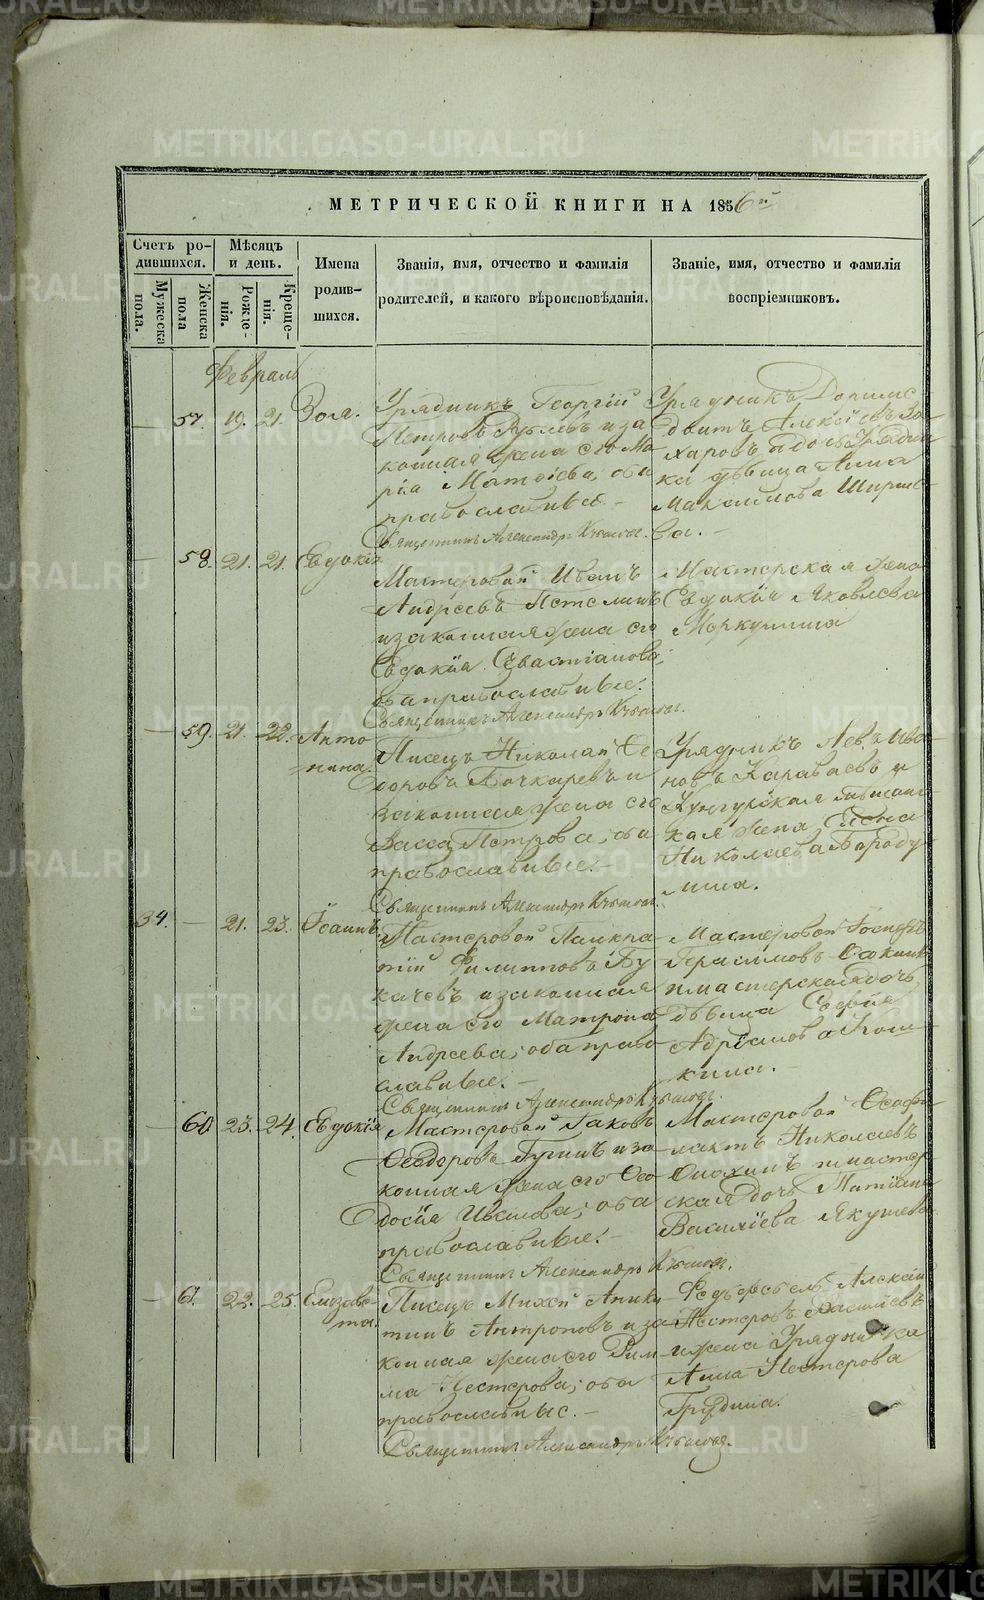 METRIKI.GASO-URAL.RU
МЕТРИЧЕСКОЙ КНИГИ НА 1856й
Счетъ ро-
дившихся.
Мѣсяцъ
и день.
Имена
родив-
шихся.
Званія, имя, отчество и фамилія
родителей, и какого вѣроисповѣданія.
Званіе, имя, отчество и фамилія
воспріемниковъ.
Мужеска
пола.
Женска
пола
Рожде-
нія.
Креще-
нія.
Февраль
57. 19. 21. Зоя.
Урядникъ Георгій
Петровъ и за
конная жена его Ма
рія Матѳіева, оба
православные. –
Священникъ Александръ
Урядникъ
Алексіевъ За
харовъ и дочь Урядни
ка дѣвица Анна
Максимова Ширяе
ва. –
— 58. 21. 21. Евдокія
Мастеровой Иванъ
Андреевъ Петелинъ
и законная жена его
Евдокія Севастіанова,
оба православные.
Священникъ Александръ
Мастерская жена
Евдокія Яковлева
Меркулина
— 59. 21. 22. Анто
нина.
Писецъ Николай Ѳе
доровъ Бочкаревъ и
законная жена его
Васса Петрова, оба
православные. –
Священникъ Александръ
Урядникъ Левъ Ива
новъ Караваевъ и
Кунгурская мѣщанс
кая жена Елена
Николаева Бороду
лина.
34. — 21. 23. Іоаннъ
Мастеровой Панкра
тій Филипповъ Бу
качевъ и законная
жена его Матрона
Андреева, оба право
славные. –
Священникъ Александръ
Мастеровой Іосифъ
Герасимовъ
и мастерская дочь
дѣвица Софія
Адріанова Кош
кина. –
— 60 23. 24. Евдокія
Мастеровой Іаковъ
Ѳеодоровъ и за
конная жена его Ѳео
досія Иванова; оба
православные. –
Священникъ Александръ
Мастеровой Ѳеофи
лактъ Николаевъ
и мастер
ская дочь Татіана
Василіева Якушева
— 61. 23. 25. Елизаве
та.
Писецъ Михей Аники
тинъ Антроповъ и за
конная жена его Рим
ма Нестерова, оба
православные. –
Священникъ Александръ
Фельдфебель Алексій
Нестеровъ Василіевъ
и жена Урядника
Анна Нестерова
Грудина.